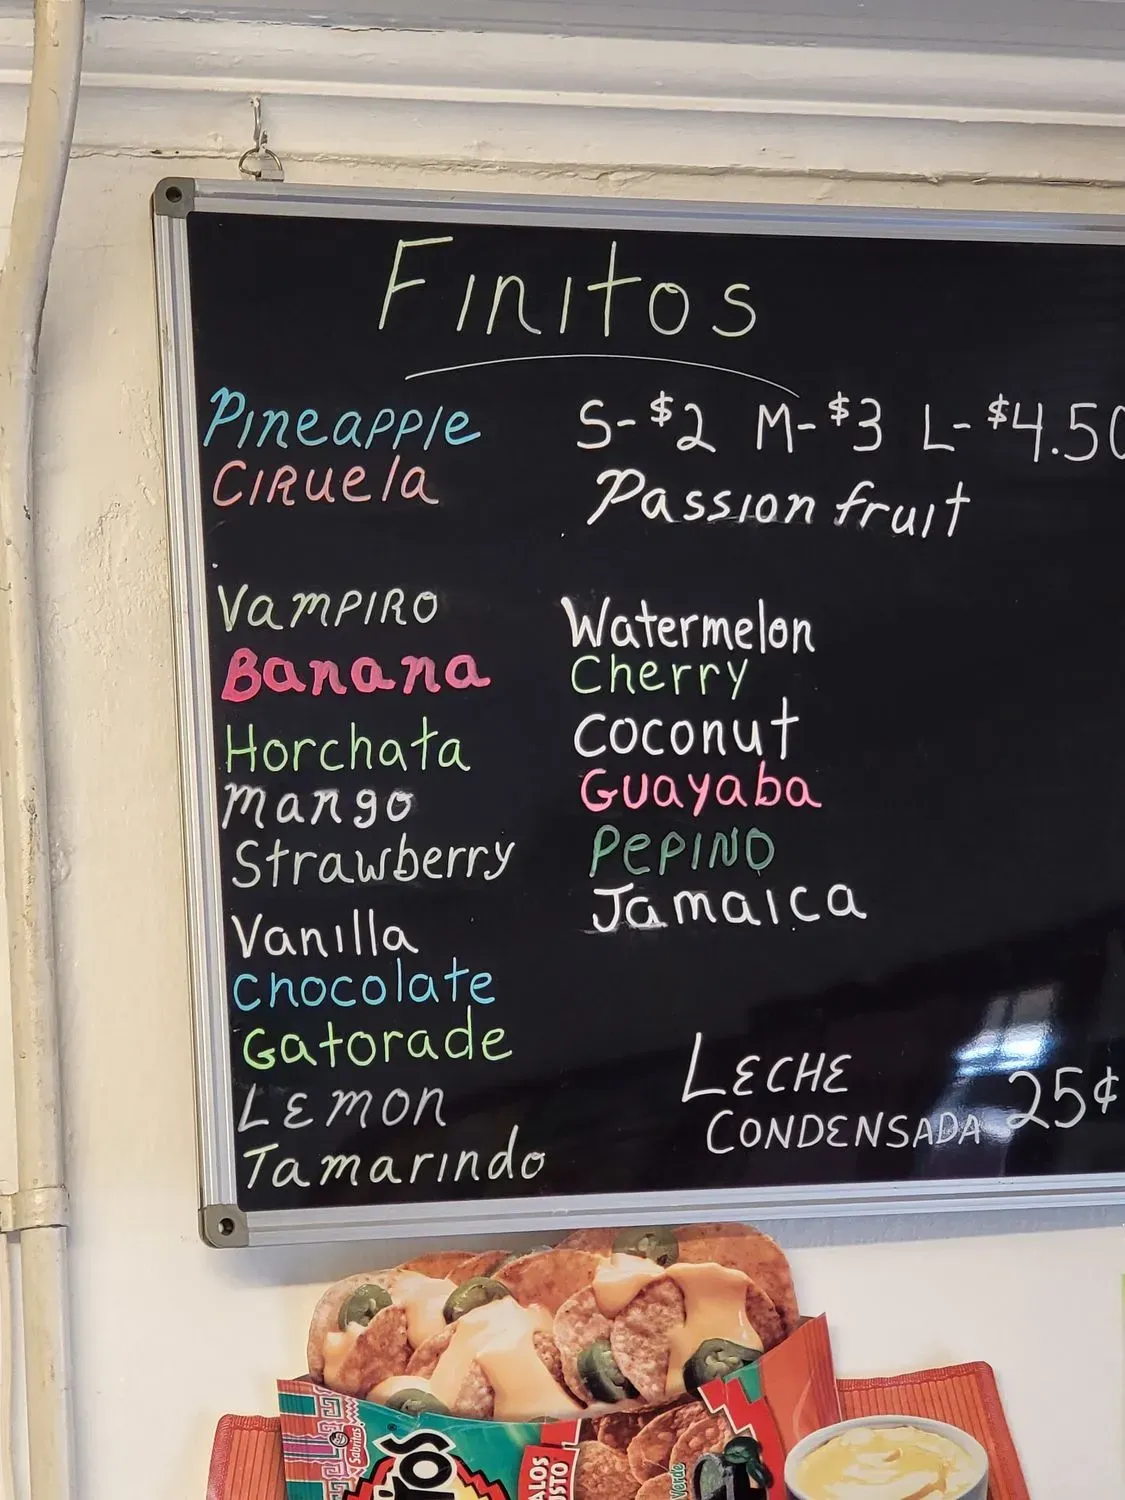 Finitos
Pineapple
Ciruela
S-$2 M-$3 L-$4.50
Passion fruit
Vampiro
Banana
Horchata
Mango
Strawberry
Vanilla
Chocolate
Gatorade
Lemon
Tamarindo
Watermelon
Cherry
Coconut
Guayaba
Pepino
Jamaica
LECHE
CONDENSADA 25¢
Sabritas
Verde